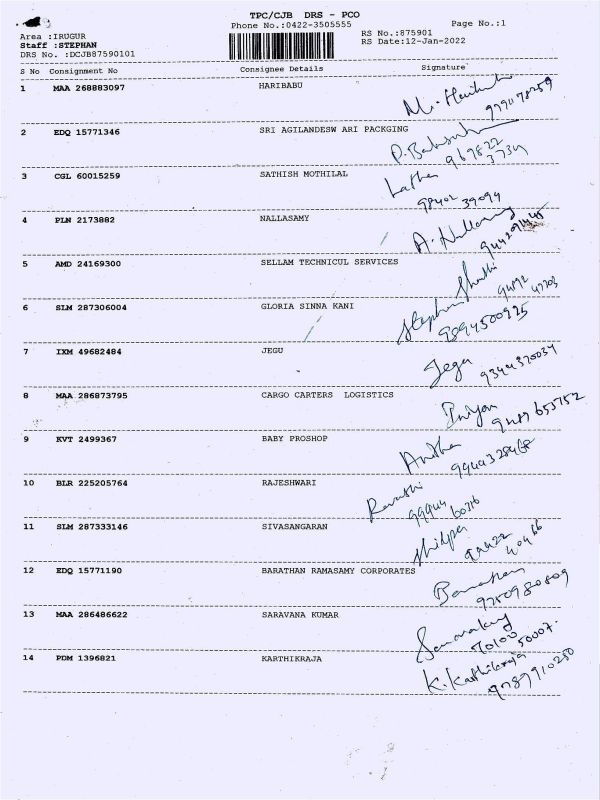 TPC/CJB DRS - PCO
Phone No.:0422-3505555
Page No.:1
Area :IRUGUR
Staff :STEPHAN
DRS No. :DCJB87590101
RS No.:875901
RS Date:12-Jan-2022
S No Consignment No Consignee Details Signature
1 MAA 268883097 HARIBABU
2 EDQ 15771346 SRI AGILANDESW ARI PACKGING
967822
3734
3 CGL 60015259 SATHISH MOTHILAL
Latha
98402 39094
4 PLN 2173882 NALLASAMY
A. Nallasamy
5 AMD 24169300 SELLAM TECHNICUL SERVICES
Shanthi
94892
47703
6 SLM 287306004 GLORIA SINNA KANI
Stephen
9894500925
7 IXM 49682484 JEGU
Jega
9344370034
8 MAA 286873795 CARGO CARTERS LOGISTICS
Iniyan
9489653752
9 KVT 2499367 BABY PROSHOP
Anitha
9944328468
10 BLR 225205764 RAJESHWARI
Revathi
99944
60716
11 SLM 287333146 SIVASANGARAN
Shilpa
98422
40466
12 EDQ 15771190 BARATHAN RAMASAMY CORPORATES
Barathan
9750980809
13 MAA 286486622 SARAVANA KUMAR
70100
50007.
14 PDM 1396821 KARTHIKRAJA
K. Karthikraja
9789910250